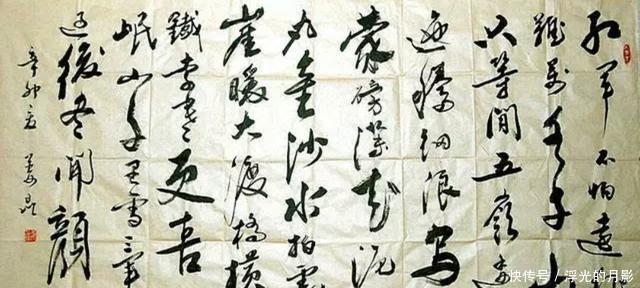 红军不怕遠
難萬水千山
只等閒五嶺逶
迤騰細浪烏
蒙磅礴走泥
丸金沙水拍雲
崖暖大渡橋橫
鐵索寒更喜
岷山千里雪三軍
過後尽開顏
辛卯夏 姜昆
快传号 / 浮光的月影